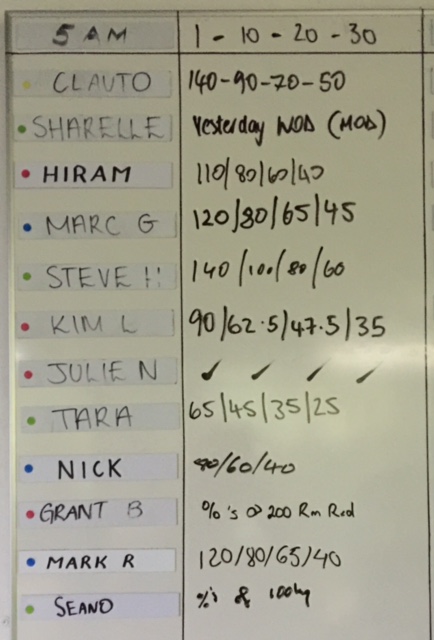 5 AM 1 - 10 - 20 - 30
CLAUTO 140-90-70-50
SHARELLE Yesterday WOD (MOD)
HIRAM 110/80/60/40
MARC G 120/80/65/45
STEVE !! 140/100/80/60
KIM L 90/62.5/47.5/35
JULIE N ✓ ✓ ✓ ✓
TARA 65/45/35/25
NICK 90/60/40
GRANT B %'s @ 200 Rm Red
MARK R 120/80/65/40
SEANO %'s of 100kg